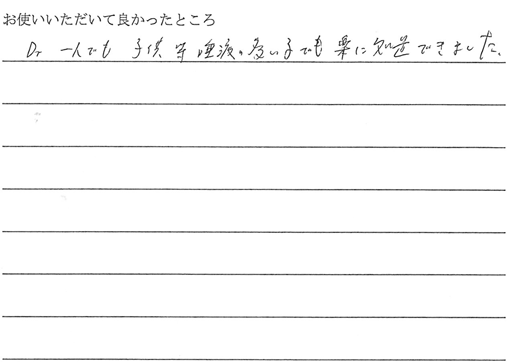 お使いいただいて良かったところ
Dr 一人でも 子供 等 唾液の多い子でも 楽に処置できました。